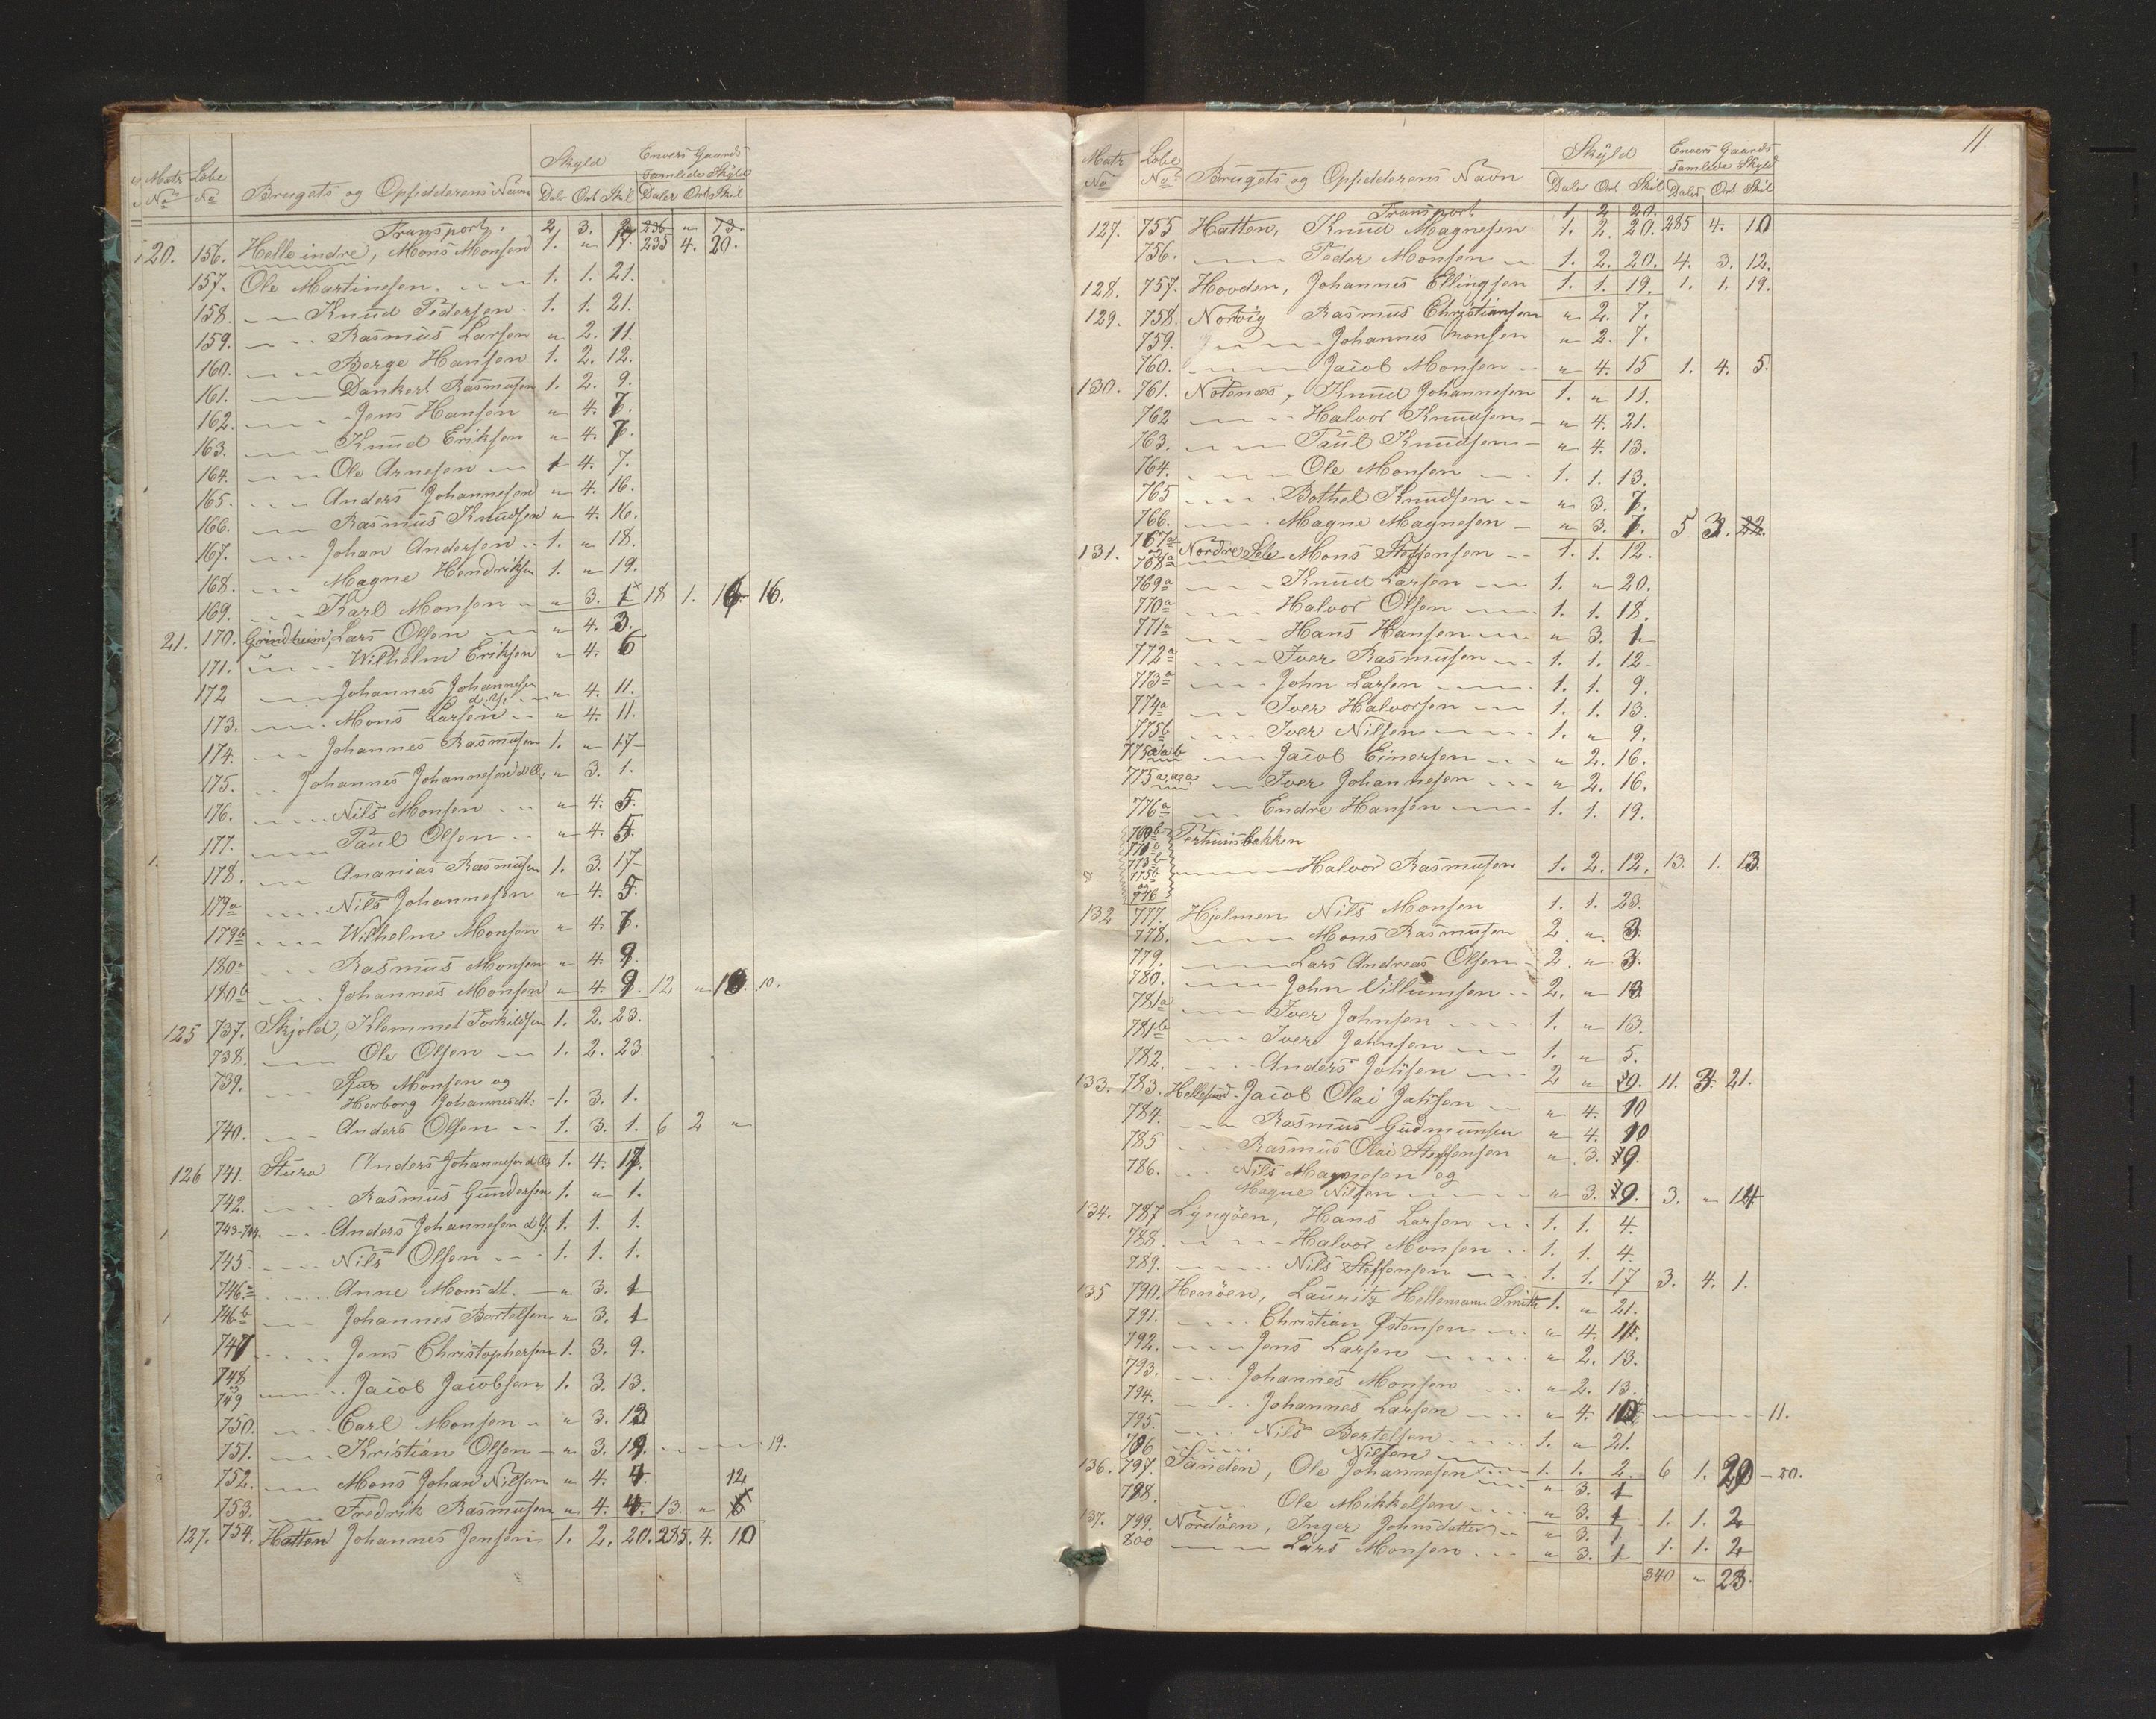 Matr No Løbe No Brugets og Opsidderens Navn Skyld Enhvers Gaards samlede Skyld
Daler Ort Skil Daler Ort Skil
Transport. 2. 3. 236 " 73.
20. 156. Helle indre, Mons Monsen 1. " 17. 235 4. 20.
157. Ole Martinesen 1. 1. 21.
158. Knud Pedersen 1. 1. 21.
159. Rasmus Larsen " 2. 11.
160. Berge Hansen 1. 2. 12.
161. Dankert Rasmusen 1. 2. 9.
162. Jens Hansen " 4. 7.
163. Knud Eriksen " 4. 7.
164. Ole Arnesen 1 4. 7.
165. Anders Johannesen " 4. 16.
166. Rasmus Knudsen " 4. 16.
167. Johan Andersen 1. " 18.
168. Magne Hendriksen 1. " 19.
169. Karl Monsen " 3. 1 18 1. 16 16.
21. 170. Grindheim, Lars Olsen " 4. 3.
171. Wilhelm Eriksen " 4. 6
172 Johannes Johannesen d.y. " 4. 11.
173. Mons Larsen " 4. 11.
174. Johannes Rasmusen 1. " 17
175. Johannes Johannesen d.Æ. " 3. 1.
176. Nils Monsen " 4. 5.
177. Paul Olsen " 4. 5.
178. Ananias Rasmusen 1. 3. 17
179a Nils Johannesen " 4. 5.
179b Wilhelm Monsen " 4. 7.
180a Rasmus Monsen " 4. 9.
180b Johannes Monsen " 4. 9. 12 " 10. 10.
125 737. Skjold, Klemmet Torkildsen 1. 2. 23.
738. Ole Olsen 1. 2. 23
739. Sjur Monsen og
Herborg Johannesdt. 1. 3. 1.
740. Anders Olsen 1. 3. 1. 6 2 "
126 741. Stura Anders Johannesen d.Æ. 1. 4. 17.
742. Rasmus Gundersen 1. " 1.
743-744. Anders Johannesen d.Y. 1. 1. 1.
745. Nils Olsen 1. 1. 1.
746.a Anne Monsdt. " 3. 1
746b Johannes Bertelsen " 3. 1
747 Jens Christophersen 1. 3. 9.
748 og 749 Jacob Jacobsen 1. 3. 13.
750. Carl Monsen " 3. 13
751. Kristian Olsen " 3. 19. 19.
752. Mons Johan Nilsen " 4. 4. 12
753. Fredrik Rasmusen " 4. 4. 13. " 6
127. 754. Hatten Johannes Jensen 1. 2. 20. 285. 4. 10
11
Matr No Løbe No Brugets og Opsidderens Navn Skyld Enhvers Gaards samlede Skyld
Daler Ort Skil Daler Ort Skil
Transport 1 2 20.
127. 755 Hatten, Knud Magnesen 1. 2. 20. 285 4. 10
756. Peder Monsen 1. 2. 20. 4. 3. 12.
128. 757. Hovden, Johannes Ellingsen 1. 1. 19. 1. 1. 19.
129. 758. Norvig Rasmus Christiansen " 2. 7.
759. Johannes Monsen " 2. 7.
760. Jacob Monsen " 4. 15 1. 4. 5.
130. 761. Notenæs, Knud Johannesen 1. " 11.
762 Halvor Knudsen " 4. 21.
763. Paul Knudsen " 4. 13.
764. Ole Monsen 1. 1. 13.
765 Bothel Knudsen " 3. 7.
766. Magne Magnesen " 3. 7. 5 3. 22.
131. 767a og 768a Nordre Sele Mons Steffensen 1. 1. 12.
769a Knud Larsen 1. " 20.
770a Halvor Olsen 1. 1. 18.
771a Hans Hansen " 3. 1
772a Iver Rasmusen 1. 1. 12
773a John Larsen 1. 1. 9.
774a Iver Halvorsen 1. 1. 13
775b Iver Nilsen 1. " 9.
775aab Jacob Einersen " 2. 16.
775a,a,a Iver Johannesen " 2. 16.
776a Endre Hansen 1. 1. 19.
769b
770b
773b
775b
og
776
Halvor Rasmusen 1. 2. 12. 13. 1. 13.
132 777. Hjelmen Nils Monsen 1. 1. 23.
778. Mons Rasmusen 2 " 3.
779. Lars Andreas Olsen 2. " 3.
780. John Villumsen 2. " 13
781a Iver Johnsen 1. " 13.
781b Iver Johnsen 1. " 5.
782. Anders Johnsen 2 " 9. 11. 3. 21.
133. 783. Hellesund Jacob Olai Jahnsen " 4. 10
784. Rasmus Gudmunsen " 4. 10
785 Rasmus Olai Steffensen " 3. 9.
786. Nils Magnesen og
Magne Nilsen " 3. 9. 3. " 14
134. 787 Lyngøen, Hans Larsen 1. 1. 4.
788. Halvor Monsen 1. 1. 4.
789. Nils Steffensen 1. 1. 17 3. 4. 1.
135 790. Henøen, Lauritz Hellemann Smith 1. " 21.
791. Christian Østensen " 4. 11.
792. Jens Larsen " 2. 13.
793. Johannes Monsen " 2. 13.
794. Johannes Larsen " 4. 11.
795. Nils Bertelsen 1. " 21.
796 Nilsen 1. 1. 2. 6 1. 20 20.
136. 797. Sanden, Ole Johannesen " 3. 1
798. Ole Mikkelsen " 3. 1 1. 1. 2
137. 799. Nordøen, Inger Johnsdatter " 3. 1
800 Lars Monsen " 3. 1 1. 1. 2
340 " 23.